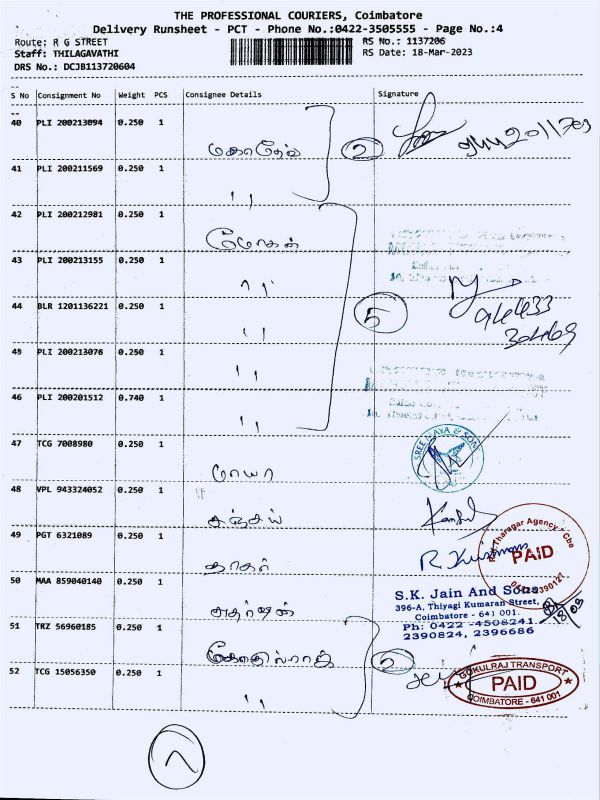 THE PROFESSIONAL COURIERS, Coimbatore
Delivery Runsheet - PCT - Phone No.:0422-3505555 - Page No.:4
Route: R G STREET
RS No.: 1137206
Staff: THILAGAVATHI
RS Date: 18-Mar-2023
DRS No.: DCJB113720604
S No Consignment No Weight PCS Consignee Details Signature
40 PLI 200213094 0.250 1
மகாதேவ்
2
41 PLI 200211569 0.250 1
,,
42 PLI 200212981 0.250 1
மோகன்
43 PLI 200213155 0.250 1
,,
44 BLR 1201136221 0.250 1
5
94433
30469
,,
45 PLI 200213076 0.250 1
,,
46 PLI 200201512 0.740 1
,,
47 TCG 7008980 0.250 1
SREE MAYA & SON
மாயா
48 VPL 943324052 0.250 1
சஞ்சய்
49 PGT 6321089 0.250 1
Agency - Cbe
PAID
தாகர்
50 MAA 859040140 0.250 1
S.K. Jain And Sons
396-A, Thiyagi Kumaran Street,
Coimbatore - 641 001.
Ph: 0422 -4508241.
2390824, 2396686
18/03
51 TRZ 56960185 0.250 1
2
52 TCG 15056350 0.250 1
,,
GOKULRAJ TRANSPORT
PAID
COIMBATORE - 641 001